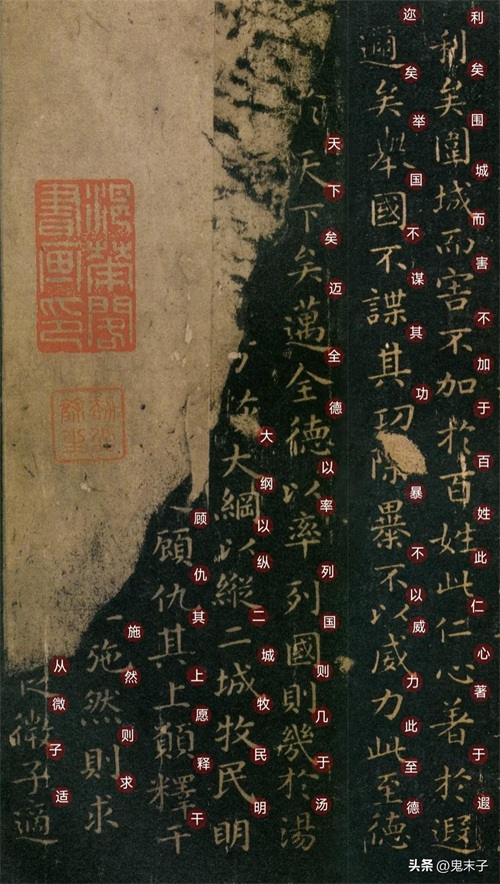 利矣圍城而害不加於百姓此仁心著於遐
利矣围城而害不加于百姓此仁心著于遐
邇矣舉國不謀其功除暴不以威力此至德
迩矣举国不谋其功暴不以威力此至德
天下矣邁全德以率列國則幾於湯
天下矣迈全德以率列国则几于汤
大綱以縱二城牧民明
大纲以纵二城牧民明
顧仇其上願釋干
顾仇其上愿释干
施然則求
施然则求
微子適
从微子适
書畫印
头条 @鬼末子